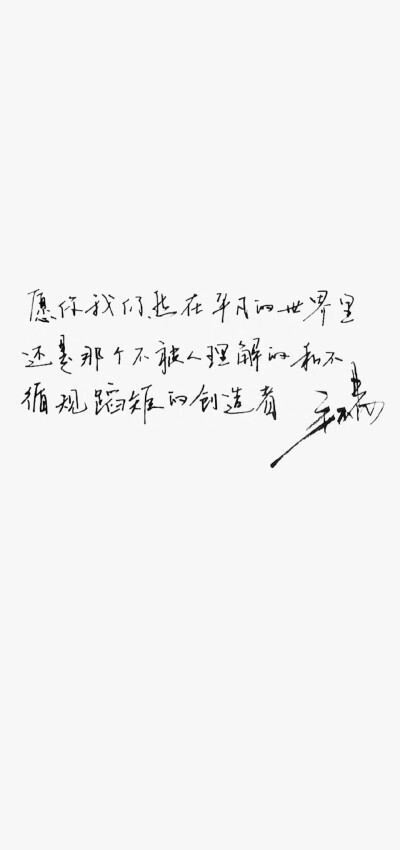 愿你我仍然在平凡的世界里
还是那个不被人理解的和不
循规蹈矩的创造者